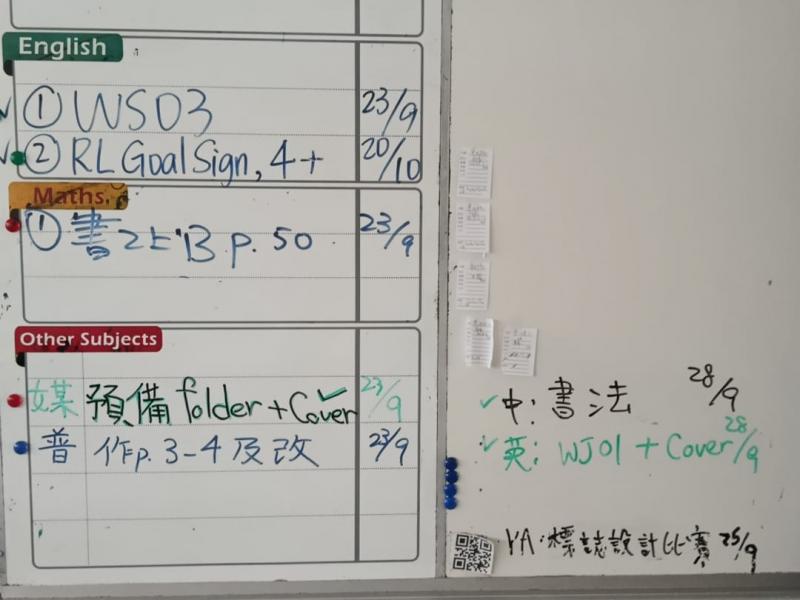 English
① WS03 23/9
② RL Goal Sign, 4+ 20/10
Maths
① 書2上B p. 50 23/9
Other Subjects
媒 預備 folder + Cover 23/9
普 作p. 3-4 及改 23/9
中: 書法 28/9
英: WJ01 + Cover 28/9
YA: 標誌設計比賽 25/9